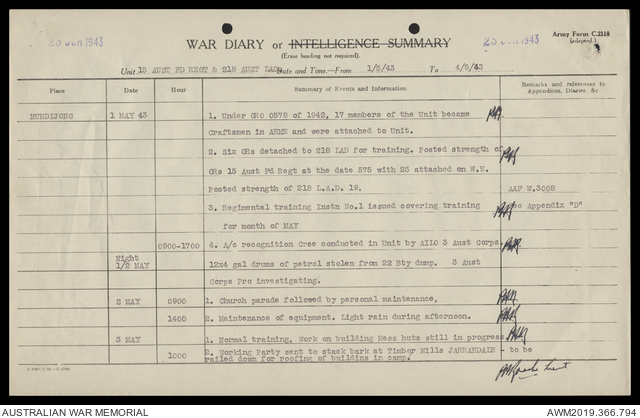 20 JUN 1943
WAR DIARY or INTELLIGENCE SUMMARY
20 JUN 1943
Army Form C.2118
(adapted.)
(Erase heading not required).
Unit 15 AUST FD REGT & 218 AUST LAD Date and Time.—From 1/5/43 To 4/5/43
Place Date Hour Summary of Events and Information Remarks and references to
Appendices, Diaries, &c
MUNDIJONG 1 MAY 43 1. Under GRO 0578 of 1942, 17 members of the Unit became
Craftsmen in AEME and were attached to Unit.
2. Six ORs detached to 218 LAD for training. Posted strength of
ORs 15 Aust Fd Regt at the date 575 with 23 attached on W.E.
Posted strength of 218 L.A.D. 19. AAF W.3008
3. Regimental training Instn No.1 issued covering training See Appendix "D"
for month of MAY
0900-1700 4. A/c recognition Crse conducted in Unit by AILO 3 Aust Corps.
Night
1/2 MAY 12x4 gal drums of petrol stolen from 22 Bty dump. 3 Aust
Corps Pro investigating.
2 MAY 0900 1. Church parade followed by personal maintenance,
1400 2. Maintenance of equipment. Light rain during afternoon.
3 MAY 1. Normal training, Work on building Mess huts still in progress
1000 2. Working Party sent to stack bark at Timber Mills JARRAHDALE - to be
railed down for roofing of buildins in camp.
AUSTRALIAN WAR MEMORIAL
AWM2019.366.794